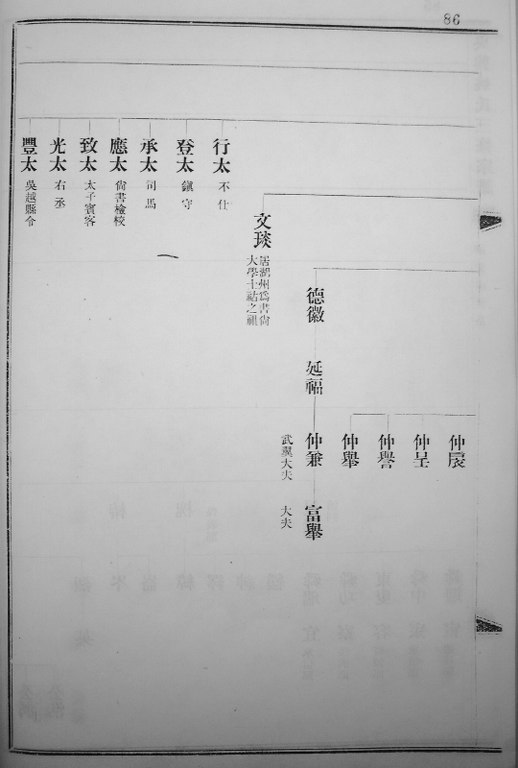 86
仲宸
仲呈
仲譽
仲舉
德徽 延福 仲兼 富舉
武翼大夫 大夫
文琰
居湖州爲書尙
大學士祐之祖
行太 不仕
登太 鎭守
承太 司馬
應太 尙書檢校
致太 太子賓客
光太 右丞
豐太 吳越縣令